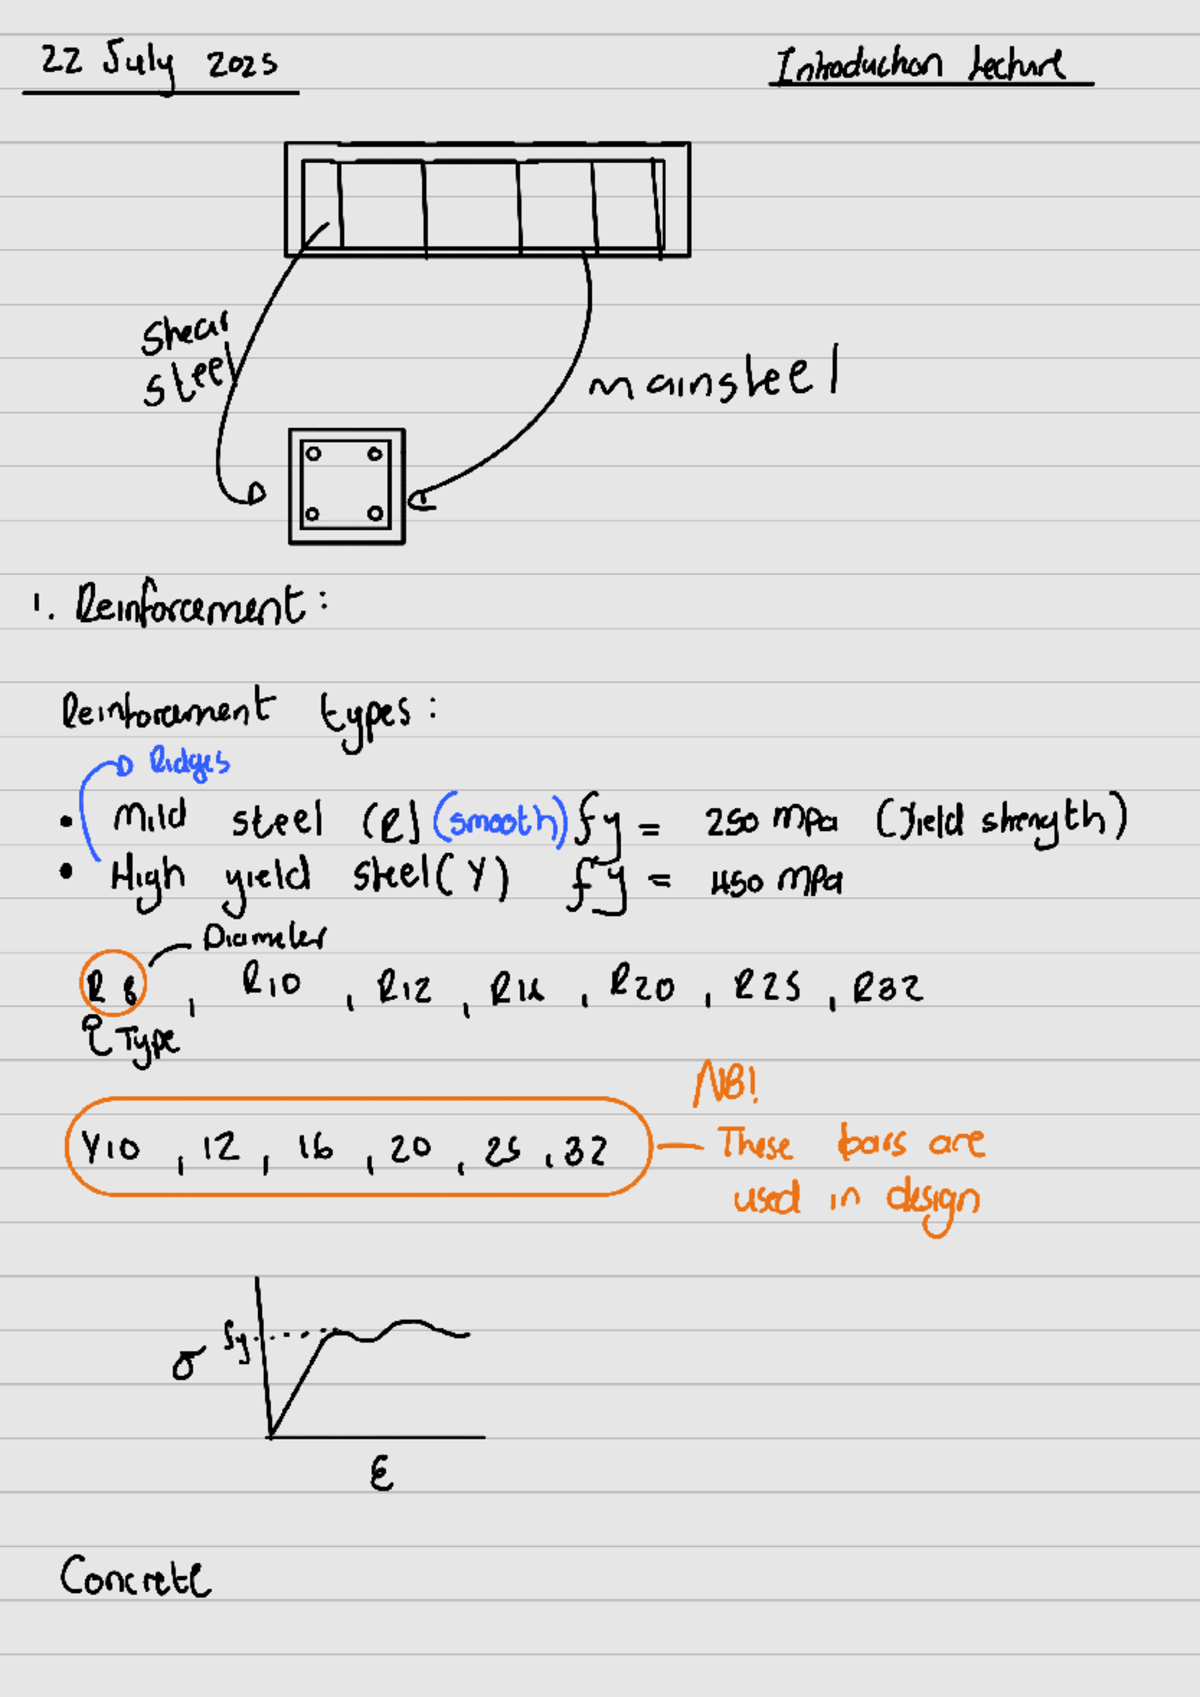 22 July 2025
Introduction Lecture
Shear
steel
mainsteel
1. Reinforcement:
Reinforcement types:
Ridges
• Mild steel (R) (smooth) fy = 250 mpa (Yield strength)
• High yield steel (Y) fy = 450 mpa
Diameter
R 8, R10, R12, R16, R20, R25, R32
Type
NB!
Y10, 12, 16, 20, 25, 32
These bars are
used in design
fy
σ
ε
Concrete